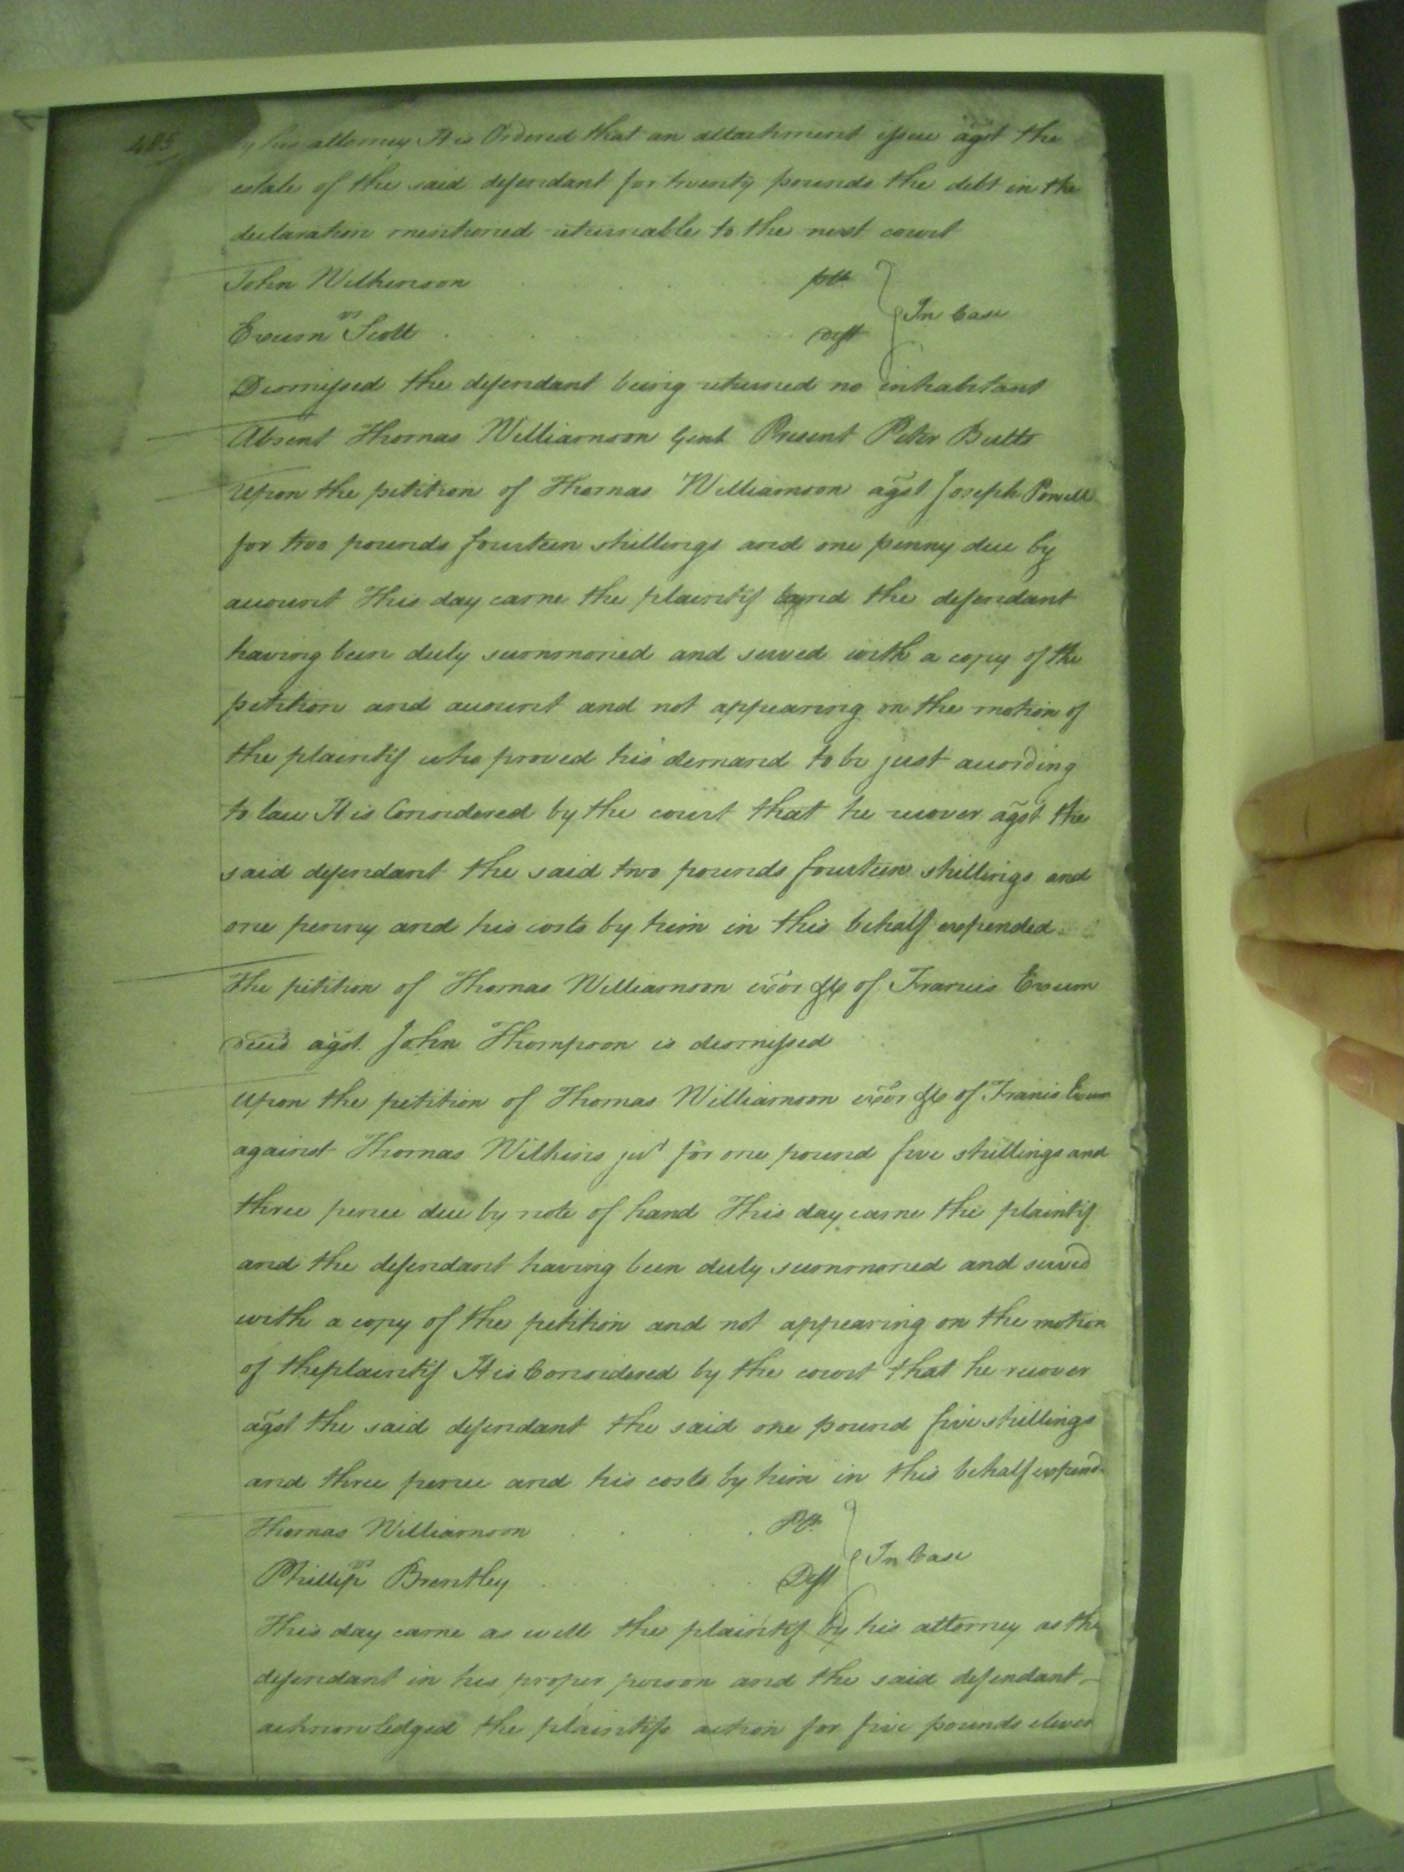 485
by his attorney It is Ordered that an attachment issue agst the
estate of the said defendant for twenty pounds the debt in the
declaration mentioned returnable to the next court
John Wilkinson . . . . plt
vs
Exum Scott . . . . . Deft
In Case
Dismissed the defendant being returned no inhabitant
Absent Thomas Williamson Gent Present Peter Butts
Upon the petition of Thomas Williamson agst Joseph Powell
for two pounds fourteen shillings and one penny due by
account This day came the plaintif and the defendant
having been duly summoned and served with a copy of the
petition and account and not appearing on the motion of
the plaintif who proved his demand to be just according
to law It is Considered by the court that he recover agst the
said defendant the said two pounds fourteen shillings and
one penny and his costs by him in this behalf expended
The petition of Thomas Williamson exor &c of Francis Exum
decd agst John Thompson is dismissed
Upon the petition of Thomas Williamson exor &c of Francis Exum
against Thomas Wilkins jur for one pound five shillings and
three pence due by note of hand This day came the plaintif
and the defendant having been duly summoned and served
with a copy of the petition and not appearing on the motion
of the plaintif It is Considered by the court that he recover
agst the said defendant the said one pound five shillings
and three pence and his costs by him in this behalf expend
Thomas Williamson . . . . Plt
vs
Phillip Brantley . . . . Deft
In Case
This day came as well the plaintif by his attorney as the
defendant in his proper person and the said defendant
acknowledged the plaintifs action for five pounds eleven